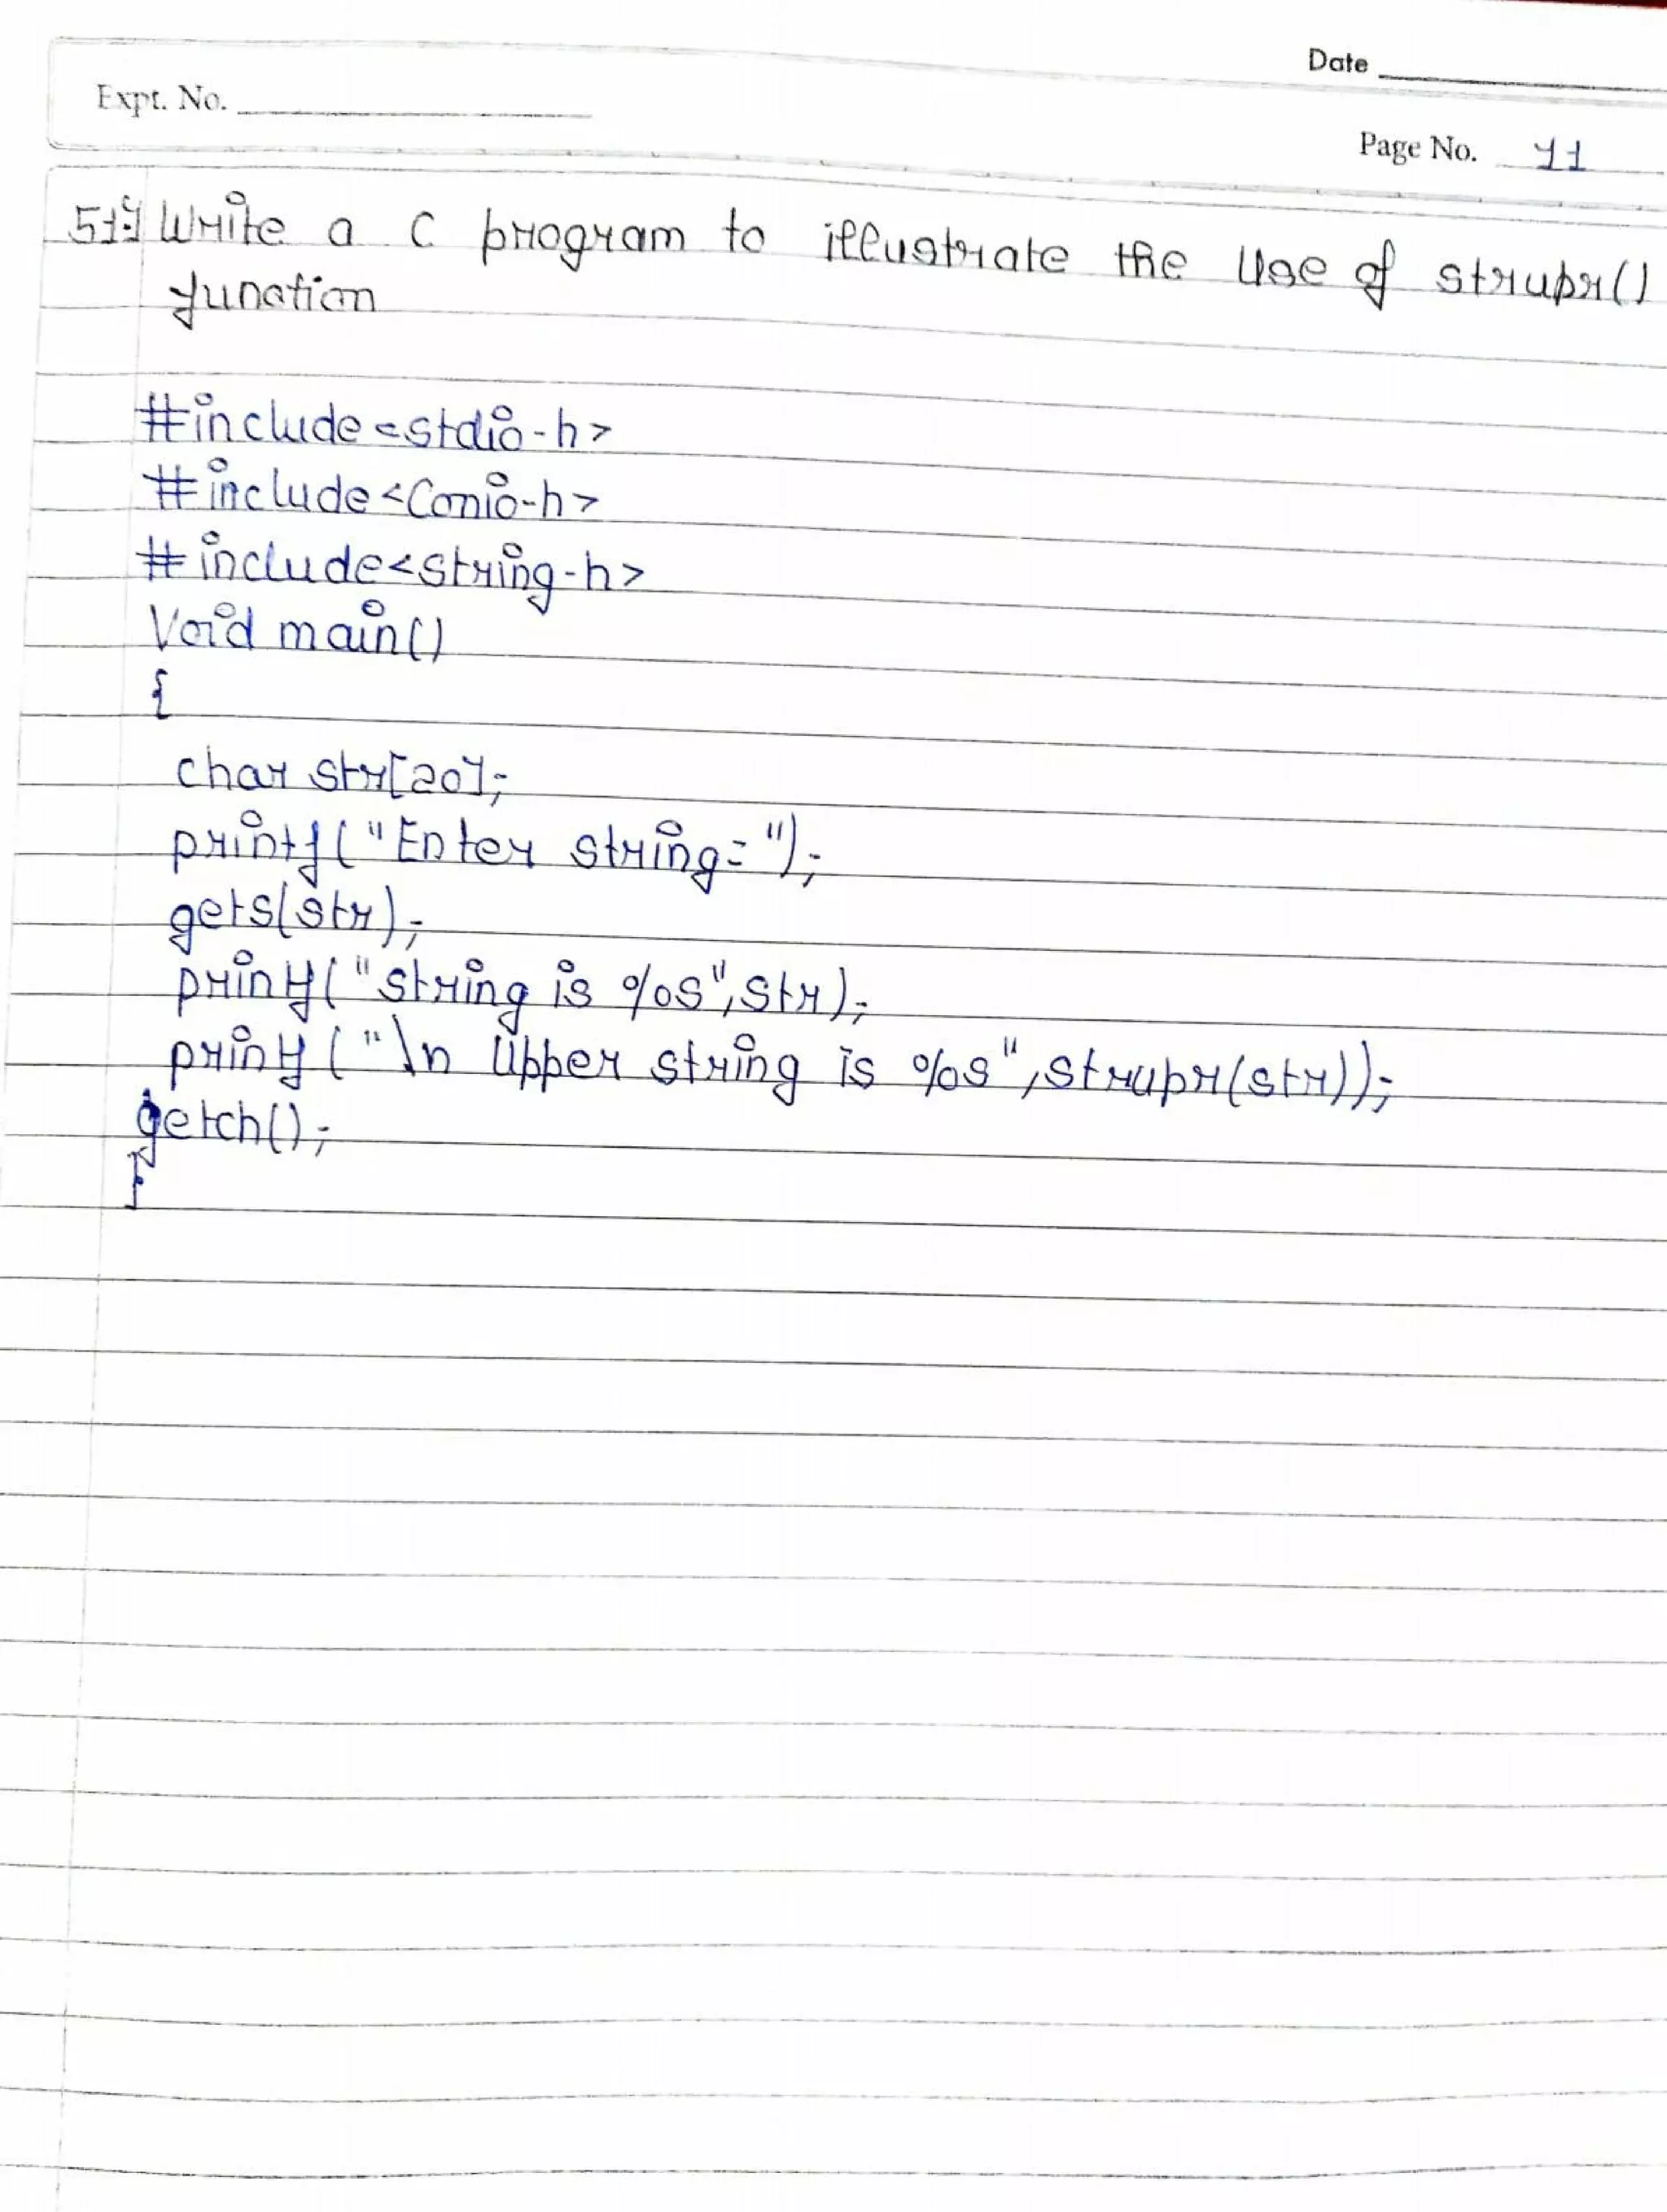 Date
Expt. No.
Page No. 11
51:- Write a C program to illustrate the use of strupr()
function
#include<stdio.h>
#include<Conio.h>
#include<string.h>
Void main()
{
char str[20];
printf("Enter string=");
gets(str);
printf("string is %s",str);
printf("\n Upper string is %s",strupr(str));
getch();
}